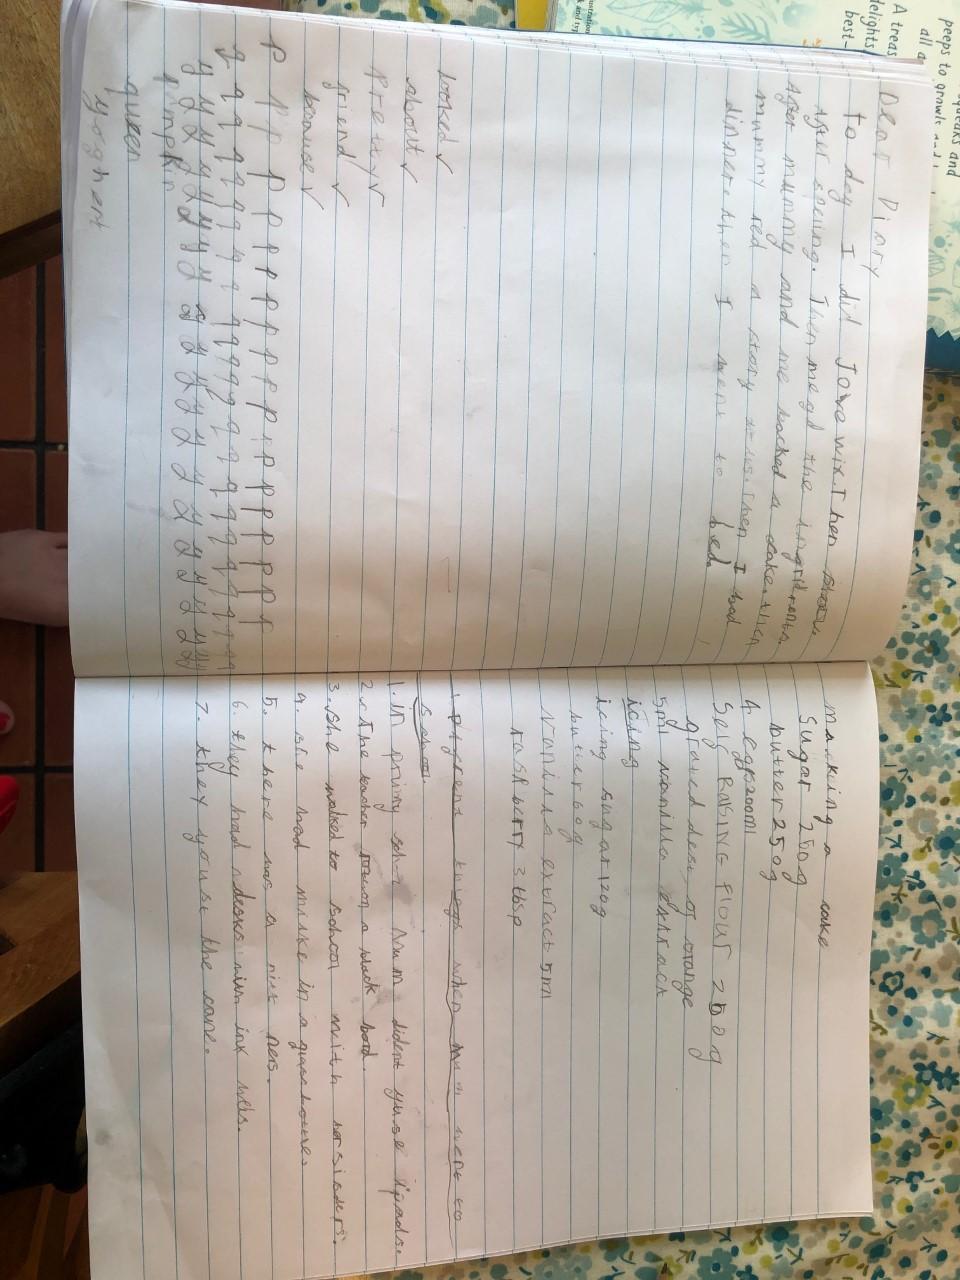 Dear Diary
to day I did Jowe wix. Then
After Then me gd the ingridrents.
After mummy and me backed a cake. then
mummy red a story to us. Then I had
dinner. then I went to bed.
looked
about
Pretty
friend
because
P P P P P P P P P P P P P P P P P P
q q q q q q q q q q q q q q q q q q
y y y y y y y y y y y y y y y y y y
queen
yoghert
macking a cake
Sugar 250g
butter 250g
4 eggs 200ml
Self RaisING Flour 250g
grated desu of orange
5ml vanilla
icing
icing sugar 120g
butter 60g
Vanilla extract 5ml
rasp berry 3 tbsp
Different things when mum went to
1. in primy Mum dident yuse ipads.
2. The teacher a black bord.
3. she walked to school with her sisders.
4. she had milke in a glass
5. there was a ners.
6. they had desks with ink wels.
7. they youse the cane.
peeps to
all a
growls and
squeaks and
A treas
delights
best-